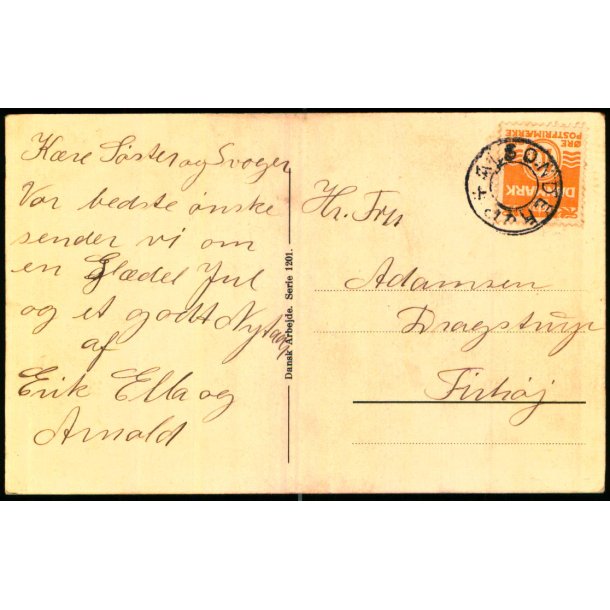 Kære Søster og Svoger
Vor bedste ønske
sender vi om
en Glædel Jul
og et godt Nytaar
af
Erik Ella og
Arnold
Dansk Arbejde. Serie 1201.
Hr. Frp
Adamsen
Dragstrup
Firhøj
ØRE
POSTFRIMÆRKE